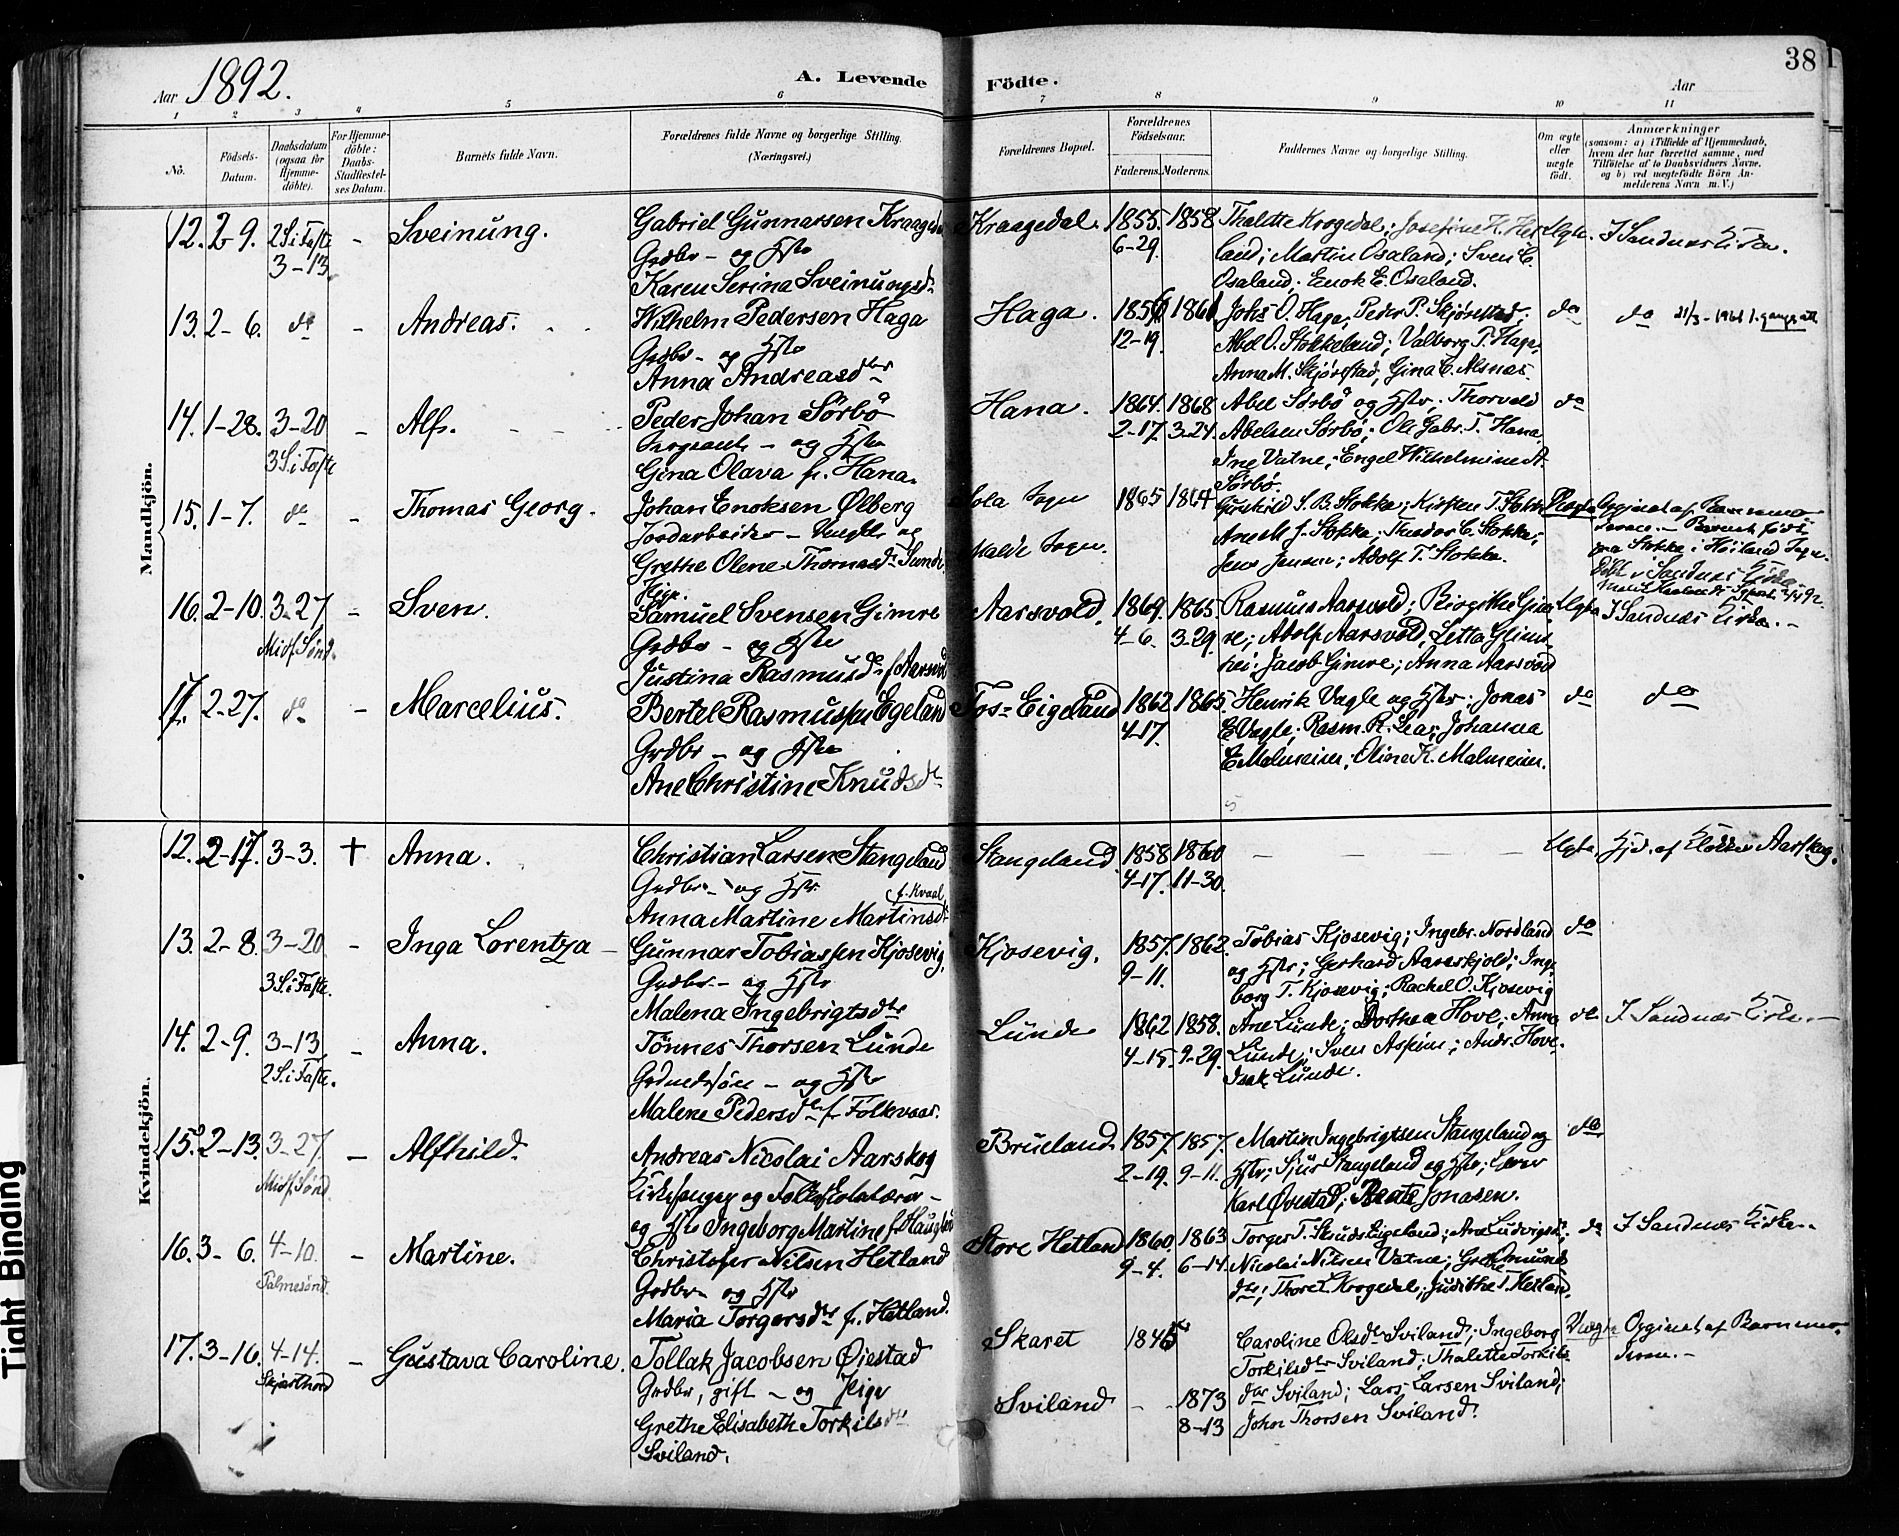 Aar 1892.
A. Levende Födte.
Aar
38
1 2 3 4 5 6 7 8 9 10 11
No.
Födsels-Datum.
Daabsdatum (ogsaa for Hjemmedöbte).
For Hjemmedöbte: Daabs-Stadfæstelses Datum.
Barnets fulde Navn.
Forældrenes fulde Navne og borgerlige Stilling.
(Næringsvei.)
Forældrenes Bopæl.
Forældrenes Födselsaar.
Faderens. Moderens.
Faddernes Navne og borgerlige Stilling.
Om ægte eller uægte födt.
Anmærkninger
(saasom: a) i Tilfælde af Hjemmedaab,
hvem der har forrettet samme, med
Tilföielse af to Daabsvidners Navne,
og b) ved uægtefödte Börn Anmelderens Navn m. V.)
Mandkjön.
12. 2-9. 2 S. i Faste 3-13. - Sveinung.
Gabriel Gunnarsen Kraagedal
Grdbr - og Hstr
Karen Serina Sveinungsdr
Kraagedal. 1855. 6-29. 1858
Thalette Krogedal; Josefine H. Hetland; Martin Osaland; Sven E.
Osaland; Enok E. Osaland.
Ægte. I Sandnes Kirke.
13. 2-6. do - Andreas.
Wilhelm Pedersen Haga
Grdbr - og Hstr
Anna Andreasdtr
Haga. 1856 12-19. 1861
Johs O. Haga, Peder P. Skjørestad;
Abel O. Stokkeland; Valborg P. Haga;
Anna M. Skjørestad, Gina E. Alsnes.
do do 21/3-1961 1. gangs att
14. 1-28. 3-20 3 S. i Faste - Alf.
Peder Johan Sörbö
og Hstr
Gina Olava f. Hana.
Hana. 1864. 2-17. 1868 3-24.
Abel Sörbö og Hstr; Thorvald
Abelsen Sörbö; Ole Gabr. T. Hana,
Ine Vatne; Engel Wilhelmine A.
Sörbö.
do
15. 1-7. do - Thomas Georg.
Johan Enoksen Ølberg
Jordarbeider - Ungkl. og
Grethe Olene Thomasdr Sunde
Pige.
Sola Sogn
Malde Sogn.
1865 1864
S. B. Stokke; Kirsten T. Stokke
Ane M. J. Stokka; Theodor E. Stokka;
Jens Jensen; Adolf T. Stokka.
Uægte Opgivet af Barnemoderen. - Barnet födt
paa Stokka i Höiland Sogn.
Döbt i Sandnes Kirke
16. 2-10. 3-27 Midf. Sönd. - Sven.
Samuel Svensen Gimre
Grdbr - og Hstr
Justina Rasmusdr f. Aarsvold
Aarsvold. 1869. 4-6. 1865. 3-29.
Rasmus Aarsvold; Birgithe Gimre; Adolf Aarsvold, Letta Glimshei; Jacob Gimre; Anna Aarsvold
Ægte I Sandnes Kirke. -
17. 2-27. do - Marcelius.
Bertel Rasmussen Egeland
Grdbr - og Hstr
Ane Christine Knudsdtr
Fos-Eigeland 1862 4-17. 1865.
Henrik Vagle og Hstr; Jonas
E. Vagle; Rasm. R. Lea; Johanna
E. Malmeim, Oline K. Malmeim.
do do
5
Kvindekjön.
12. 2-17. 3-3. † Anna.
Christian Larsen Stangeland
Grdbr - og Hstr
f. Kvaal
Anna Martine Martinsdtr
Stangeland 1858 4-17. 1860 11-30.
- - - -
Ægte. Hjd. af Klokker Aarskog.
13. 2-8. 3-20 3 S. i Faste. - Inga Lorentza -
Gunnar Tobiassen Kjosevig,
Grdbr. - og Hstr
Malena Ingebrigtsdtr
Kjosevig. 1857. 9-11. 1862.
Tobias Kjosevig; Ingebr. Nordland
og Hstr; Gerhard Aareskjold; Ingeborg T. Kjosevig; Rachel O. Kjosevig
do
14. 2-9. 3-13 2 S. i Faste. - Anna.
Tönnes Thorsen Lunde
Grdmdssön - og Hstr
Malene Pedersdtr f. Folkvoar.
Lunde 1862 4-15 1858. 9-29.
Ane Lunde; Dorthea Hove; Anna
Lunde; Sven Asheim; Andr. Hove.
Isak Lunde.
do I Sandnes Kirke. -
15. 2-13. 3-27 Midf. Sönd - Alfhild.
Andreas Nicolai Aarskog
Kirkesanger og Folkeskolelærer -
og Hstr Ingeborg Martine f. Haugland
Brueland 1857. 2-19. 1857. 9-11.
Martin Ingebrigtsen Stangeland og
Hstr; Sjur Stangeland og Hstr; Lærer
Karl Øvestad; Beate Jonasen.
do
16. 3-6. 4-10. Palmesönd. - Martine.
Christofer Nilsen Hetland
Grdbr - og Hstr
Maria Torgersdtr f. Hetland.
Store Hetland 1860. 9-4. 1863 6-14.
Torger T. Skuds Eigeland; Ane Ludvigsdr;
Nicolai Nilsen Vatne; Grethe Omundsdtr; Thore T. Krogedal; Judithe T. Hetland.
do I Sandnes Kirke. -
17. 3-16. 4-14. Skjærthorsd - Gustava Caroline.
Tollak Jacobsen Øiestad
Grdbr, gift - og Pige
Grethe Elisabeth Torkilsdtr
Sviland.
Skaret 1846
Sviland - 1873 8-13
Caroline Olsdtr Sviland; Ingeborg
Torkilsdtr Sviland; Thalette Torkilsdtr Sviland; Lars Larsen Sviland;
John Thorsen Sviland.
Uægte Opgivet af Barnemoderen. -
Tight Binding